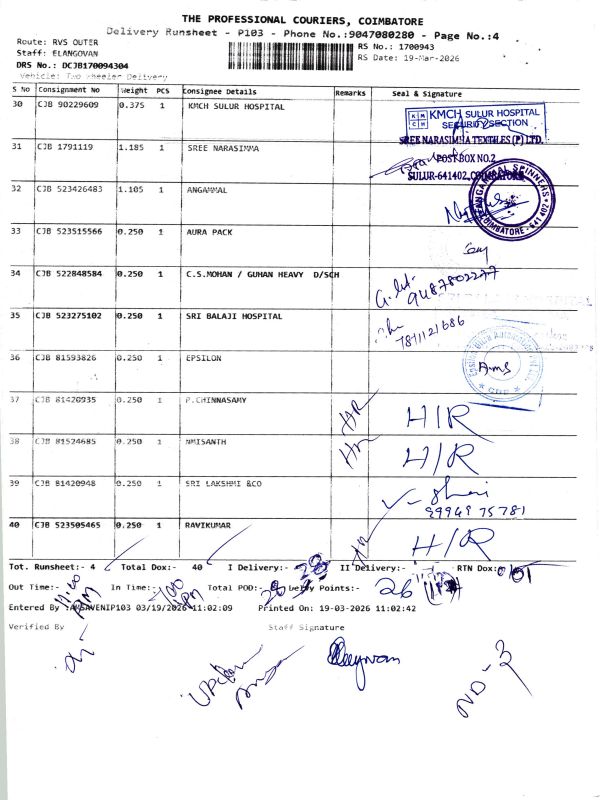 THE PROFESSIONAL COURIERS, COIMBATORE
Delivery Runsheet - P103 - Phone No.:9047080280 - Page No.:4
Route: RVS OUTER
RS No.: 1700943
Staff: ELANGOVAN
RS Date: 19-Mar-2026
DRS No.: DCJB170094304
Vehicle: Two Wheeler Delivery
S No Consignment No Weight PCS Consignee Details Remarks Seal & Signature
30 CJB 90229609 0.375 1 KMCH SULUR HOSPITAL
KMCH SULUR HOSPITAL
SECURITY SECTION
31 CJB 1791119 1.185 1 SREE NARASIMMA
SREE NARASIMMA TEXTILES (P) LTD.
POST BOX NO.2
SULUR-641402, COIMBATORE
32 CJB 523426483 1.105 1 ANGAMMAL
ANGAMMAL SPINNERS
COIMBATORE - 641 402
33 CJB 523515566 0.250 1 AURA PACK
34 CJB 522848584 0.250 1 C.S.MOHAN / GUHAN HEAVY D/SCH
9487802277
35 CJB 523275102 0.250 1 SRI BALAJI HOSPITAL
7811121686
36 CJB 81593826 0.250 1 EPSILON
37 CJB 81420935 0.250 1 P.CHINNASAMY HR H/R
38 CJB 81524685 0.250 1 NMISANTH HR H/R
39 CJB 81420948 0.250 1 SRI LAKSHMI &CO
89949 75781
40 CJB 523505465 0.250 1 RAVIKUMAR HR H/R
Tot. Runsheet:- 4 Total Dox:- 40 I Delivery:- 28 II Delivery:- RTN Dox:
Out Time:- 11:00 AM In Time:- 7:00 PM Total POD:- 26 Delvery Points:- 26
Entered By : 03/19/2026 11:02:09 Printed On: 19-03-2026 11:02:42
Verified By Staff Signature
ND-3